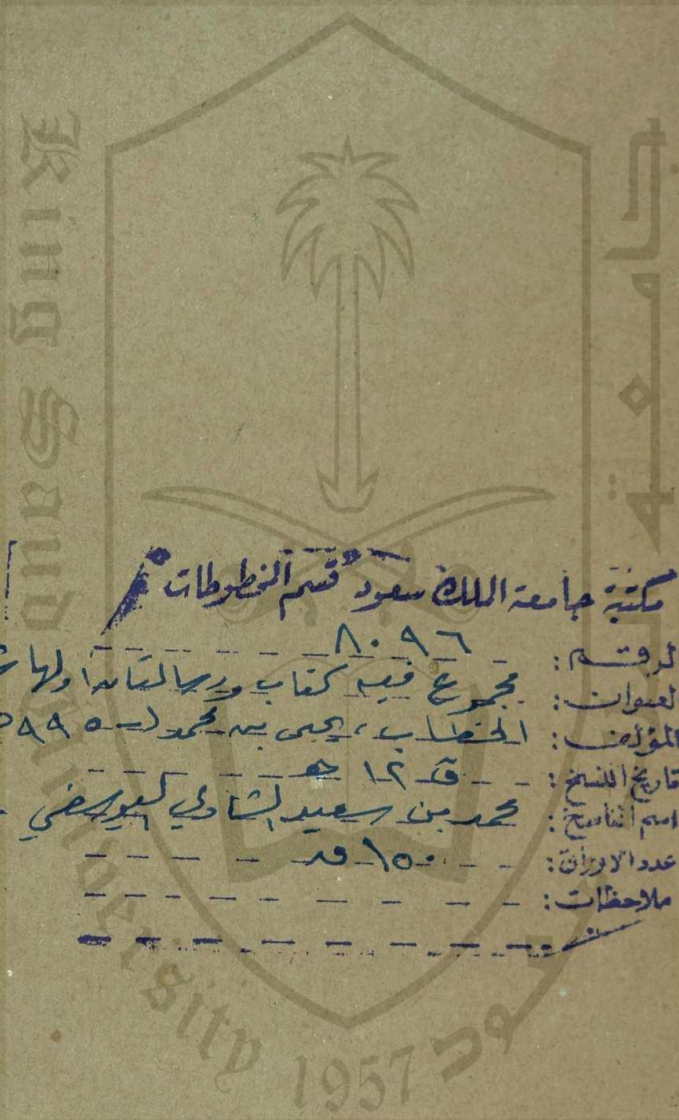 King Saud University 1957
جامعة الملك سعود
مكتبة جامعة الملك سعود قسم المخطوطات
الرقم: ٨٠٩٦
العنوان: مجموع فيه كتاب ورسالتان اولها
المؤلف: الحطاب، يحيى بن محمد ٩٩٥
تاريخ النسخ: ق ١٢ هـ
اسم الناسخ: محمد بن سعيد الشاوي
عدد الأوراق: ١٥٠ ق
ملاحظات: